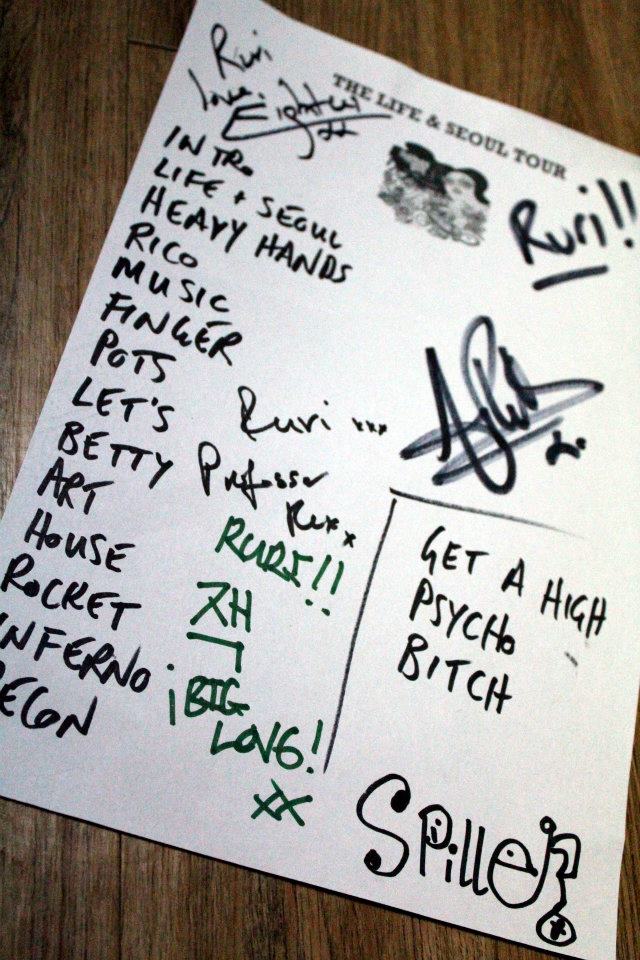 Ruri
love.
THE LIFE & SEOUL TOUR
Ruri!!
INTRO
LIFE + SEOUL
HEAVY HANDS
RICO
MUSIC
FINGER
POTS
LET'S
BETTY
ART
HOUSE
ROCKET
INFERNO
Ruri xxx
Professor
Rex x
RURI!!
ZH
¡BIG
LOVE!
XX
GET A HIGH
PSYCHO
BITCH
Spiller